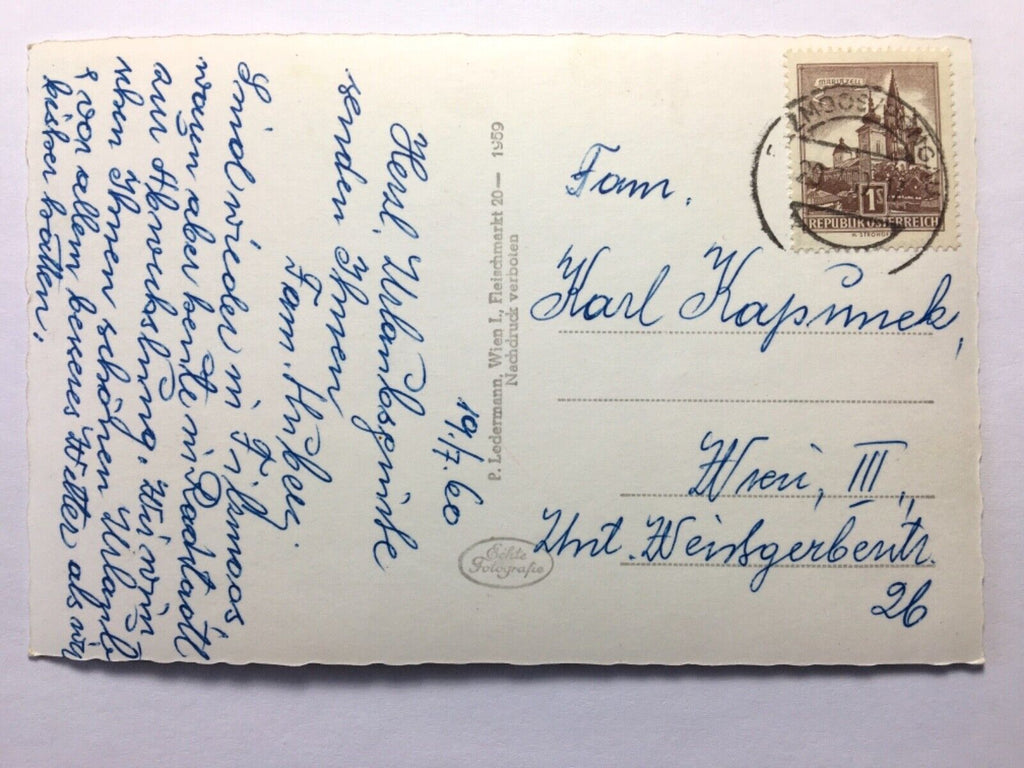 Herzl. Urlaubsgrüße
senden Ihnen
Fam. Huber
19./7. 60
Sind wieder in Filzmoos
waren aber heute in Radstadt
zur Abwechslung. Wir wün
schen Ihnen schönen Urlaub
& vor allem besseres Wetter als wir
bisher hatten.
P. Ledermann, Wien I., Fleischmarkt 20 — 1959
Nachdruck verboten
Echte
Fotografie
MARIAZELL
1S
REPUBLIK ÖSTERREICH
Fam.
Karl Kapunek,
Wien, III.,
Unt. Weißgerberstr.
26